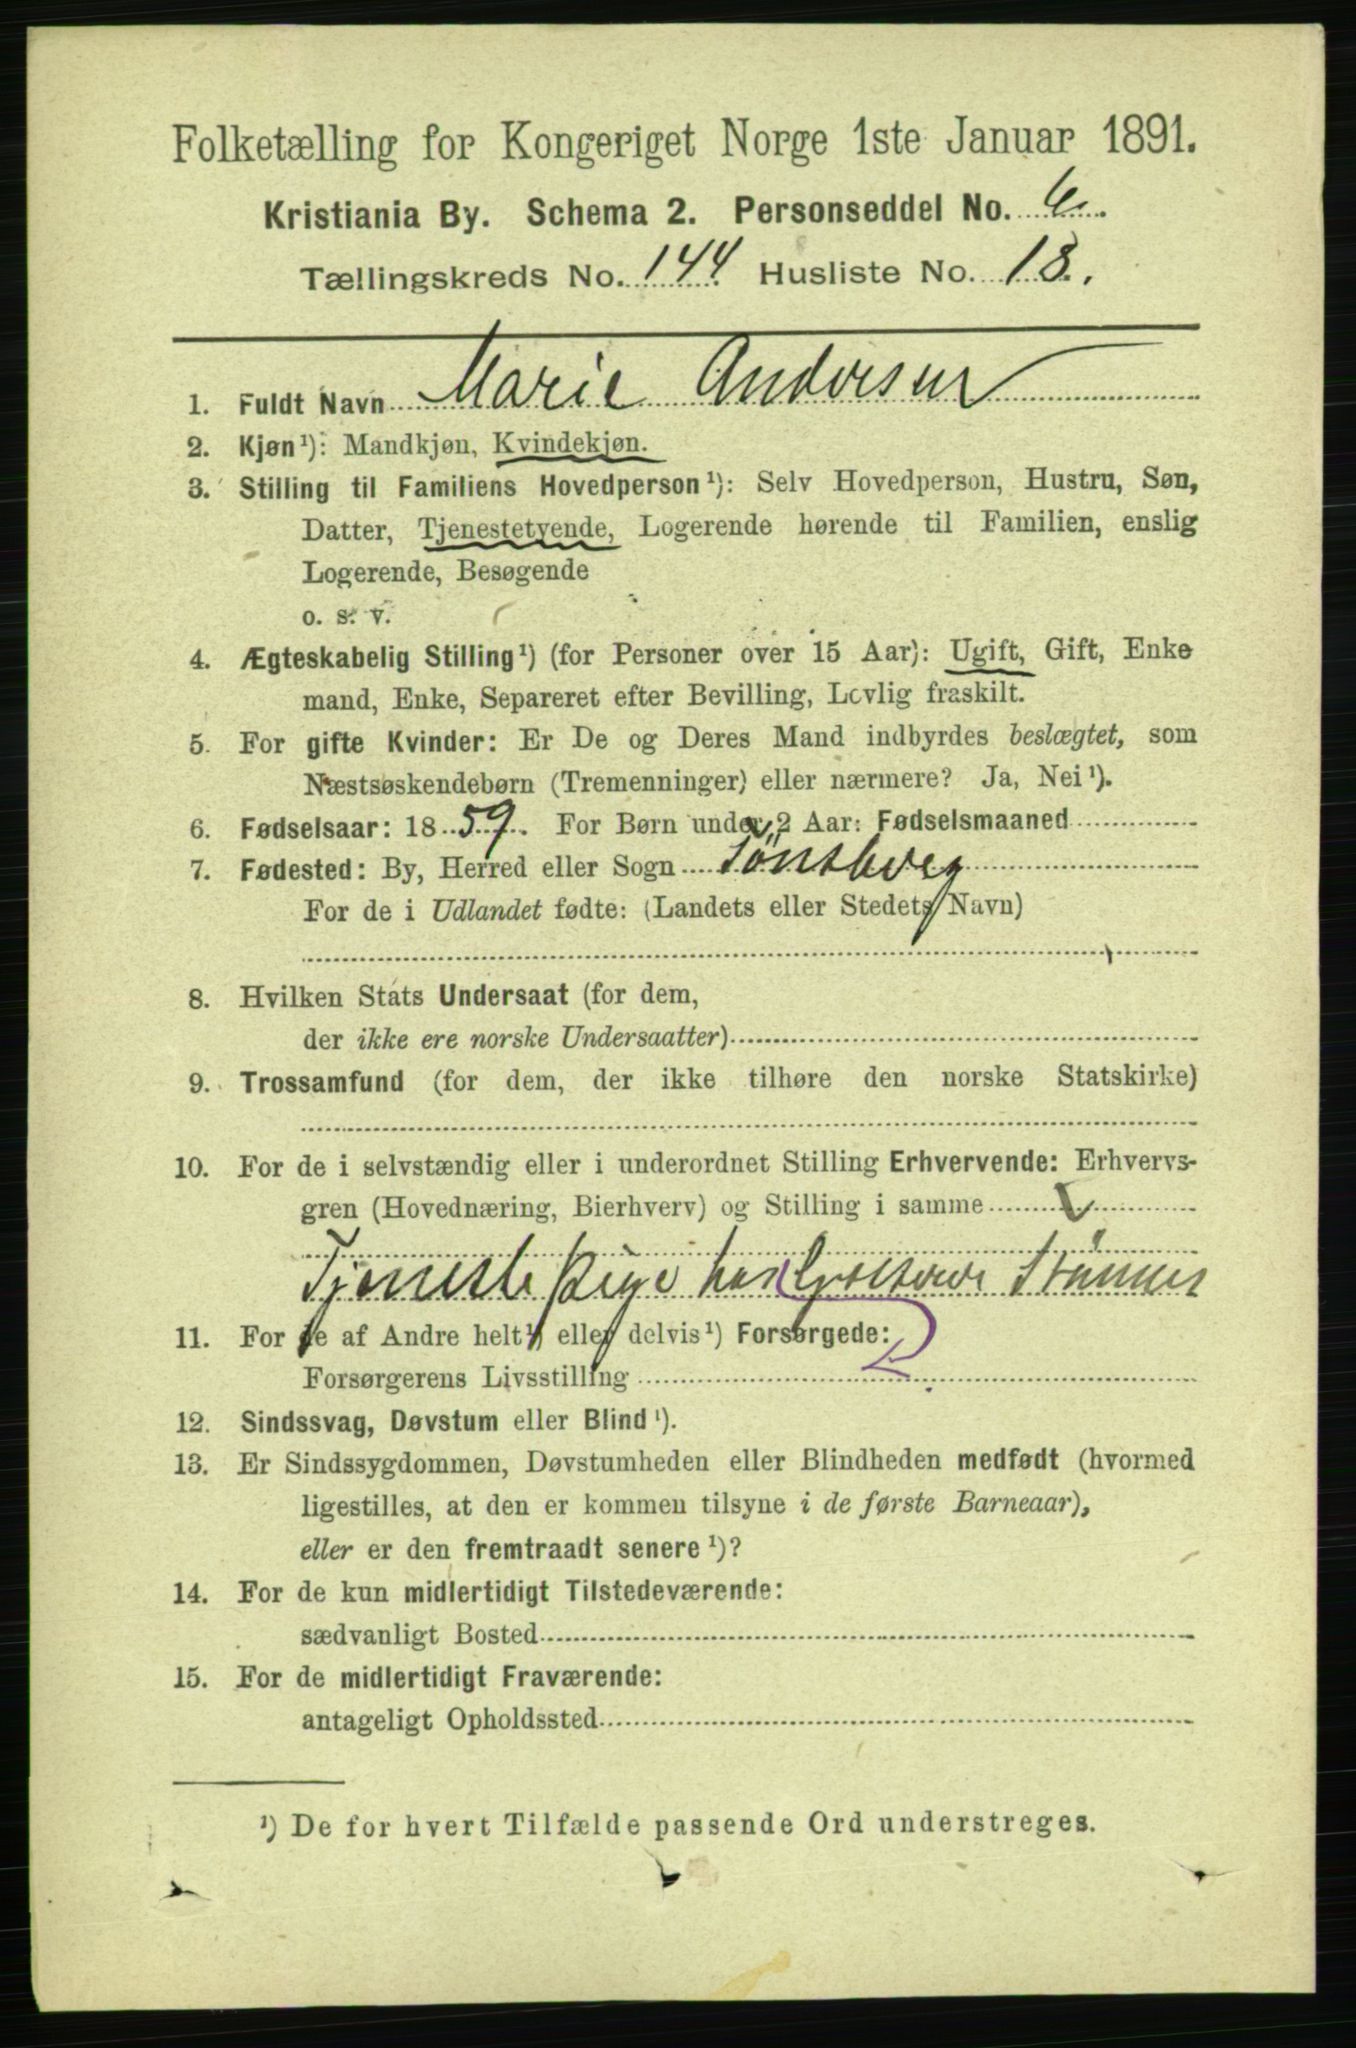 Folketælling for Kongeriget Norge 1ste Januar 1891.
Kristiania By. Schema 2. Personseddel No. 6.
Tællingskreds No. 144 Husliste No. 18.
1. Fuldt Navn Marie Andersen
2. Kjøn¹): Mandkjøn, Kvindekjøn.
3. Stilling til Familiens Hovedperson¹): Selv Hovedperson, Hustru, Søn,
Datter, Tjenestetyende, Logerende hørende til Familien, enslig
Logerende, Besøgende
o. s. v.
4. Ægteskabelig Stilling¹) (for Personer over 15 Aar): Ugift, Gift, Enke
mand, Enke, Separeret efter Bevilling, Lovlig fraskilt.
5. For gifte Kvinder: Er De og Deres Mand indbyrdes beslægtet, som
Næstsøskendebørn (Tremenninger) eller nærmere? Ja, Nei¹).
6. Fødselsaar: 1859. For Børn under 2 Aar: Fødselsmaaned
7. Fødested: By, Herred eller Sogn Tönsberg
For de i Udlandet fødte: (Landets eller Stedets Navn)
8. Hvilken Stats Undersaat (for dem,
der ikke ere norske Undersaatter)
9. Trossamfund (for dem, der ikke tilhøre den norske Statskirke)
10. For de i selvstændig eller i underordnet Stilling Erhvervende: Erhvervs-
gren (Hovednæring, Bierhverv) og Stilling i samme
Tjeneste pige hos
11. For de af Andre helt¹) eller delvis¹) Forsørgede:
Forsørgerens Livsstilling
12. Sindssvag, Døvstum eller Blind¹).
13. Er Sindssygdommen, Døvstumheden eller Blindheden medfødt (hvormed
ligestilles, at den er kommen tilsyne i de første Barneaar),
eller er den fremtraadt senere¹)?
14. For de kun midlertidigt Tilstedeværende:
sædvanligt Bosted
15. For de midlertidigt Fraværende:
antageligt Opholdssted
¹) De for hvert Tilfælde passende Ord understreges.